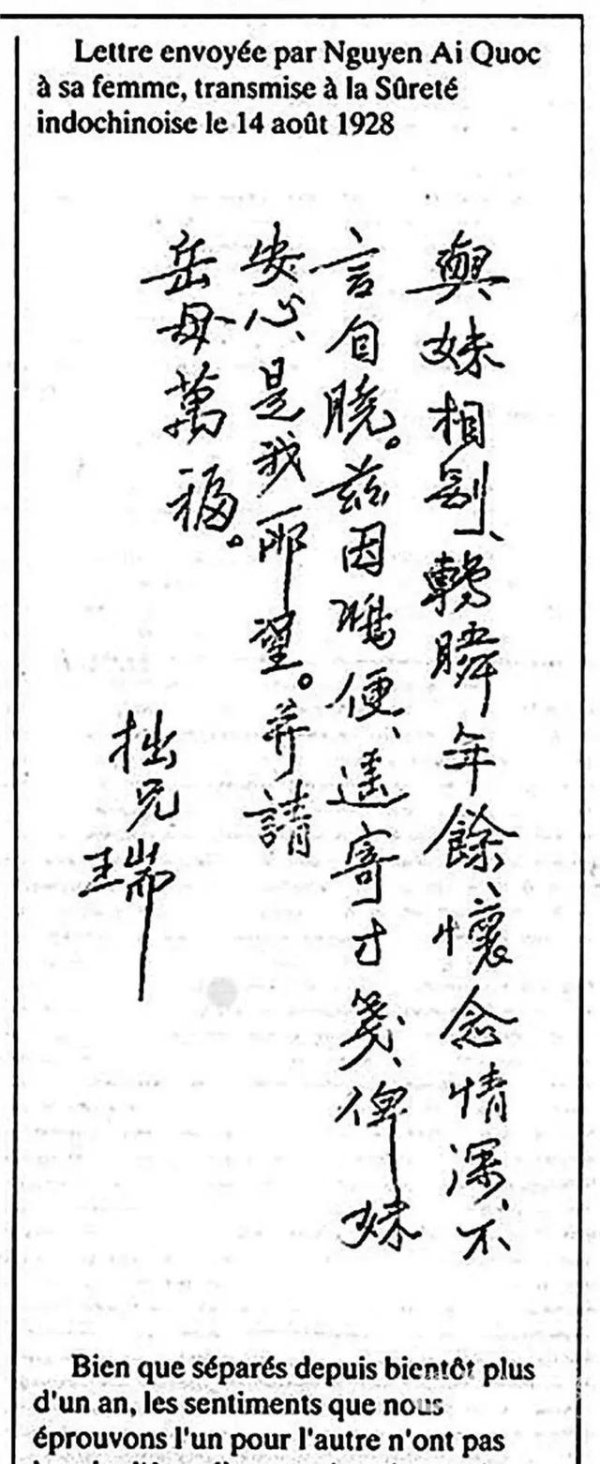 Lettre envoyée par Nguyen Ai Quoc
à sa femme, transmise à la Sûreté
indochinoise le 14 août 1928
與妹相別、轉瞬年餘、懷念情深、不
言自曉。茲因鴻便、遙寄寸箋、俾妹
安心、是我所望。并請
岳母萬福。
拙兄
瑞
Bien que séparés depuis bientôt plus
d'un an, les sentiments que nous
éprouvons l'un pour l'autre n'ont pas